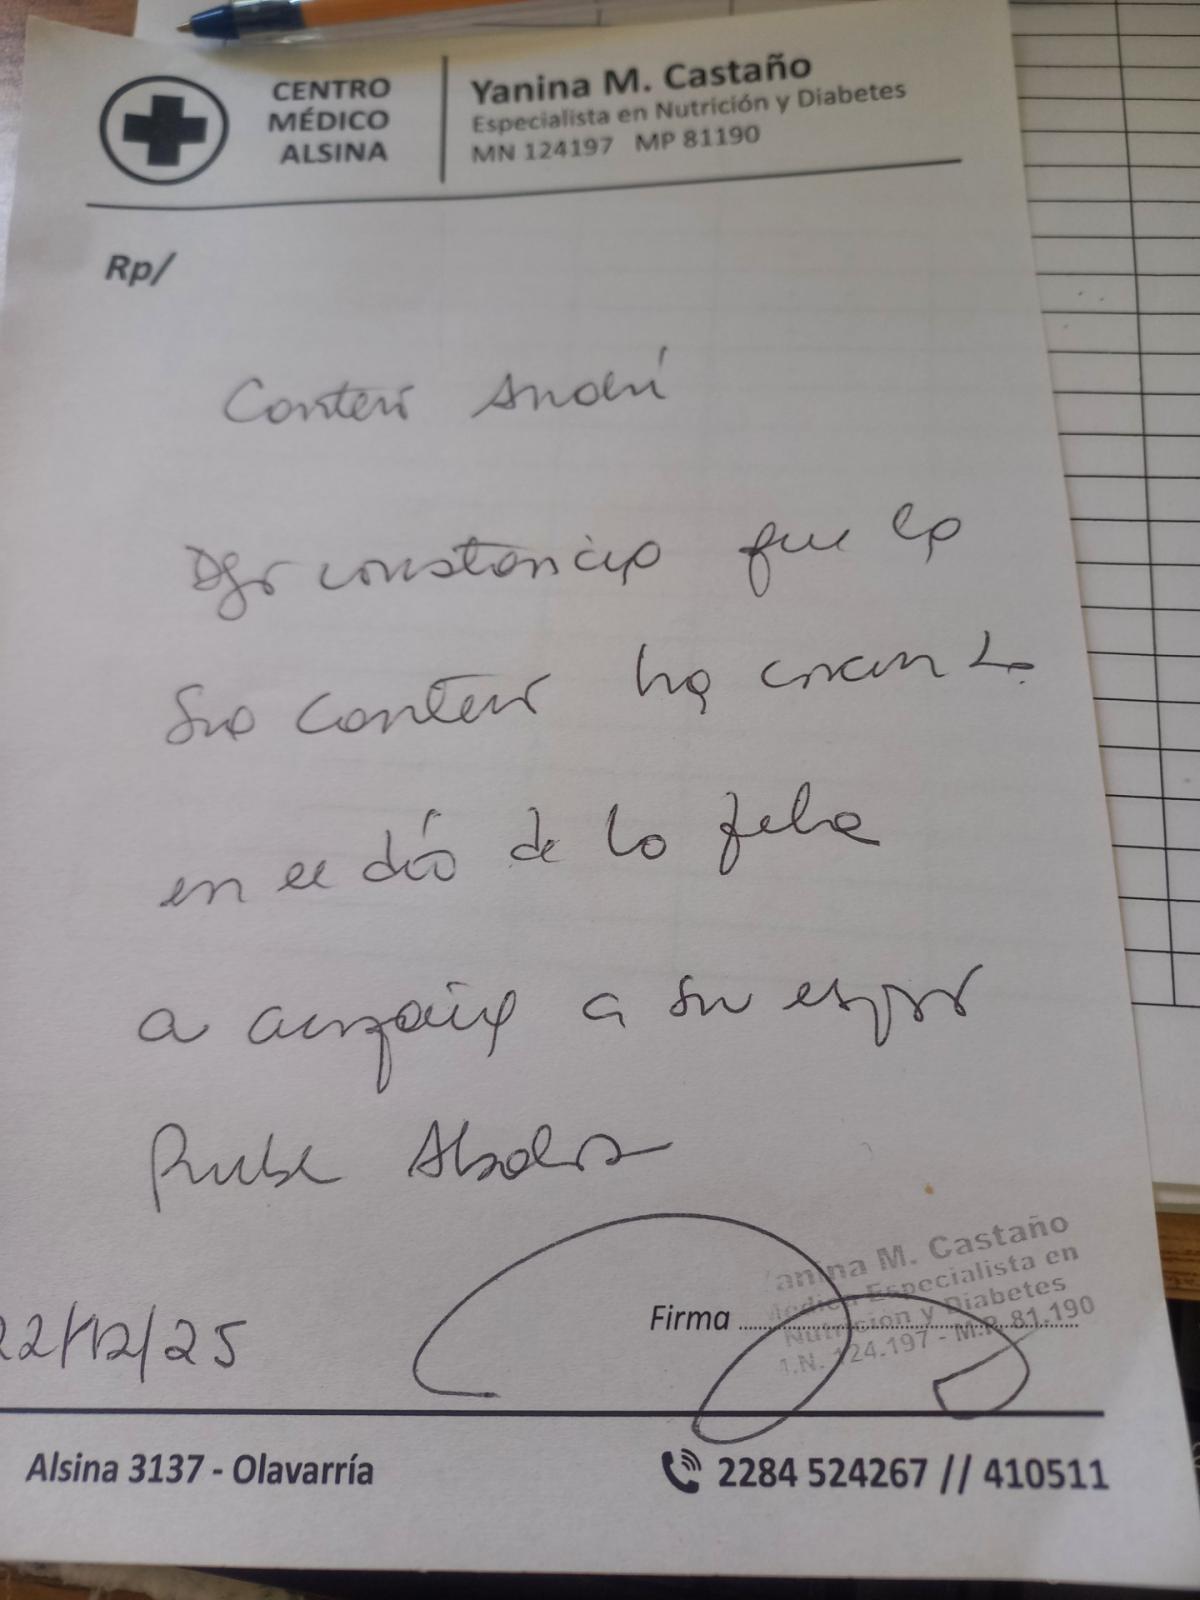 CENTRO
MÉDICO
ALSINA
Yanina M. Castaño
Especialista en Nutrición y Diabetes
MN 124197 MP 81190
Rp/
Conteri
Dejo constancia que la
Sra Conteri ha concurrido
en el día de la fecha
a acompañar a su esposo
22/12/25
Firma
Yanina M. Castaño
Médica Especialista en
Nutrición y Diabetes
M.N. 124.197 - M.P. 81.190
Alsina 3137 - Olavarría
2284 524267 // 410511